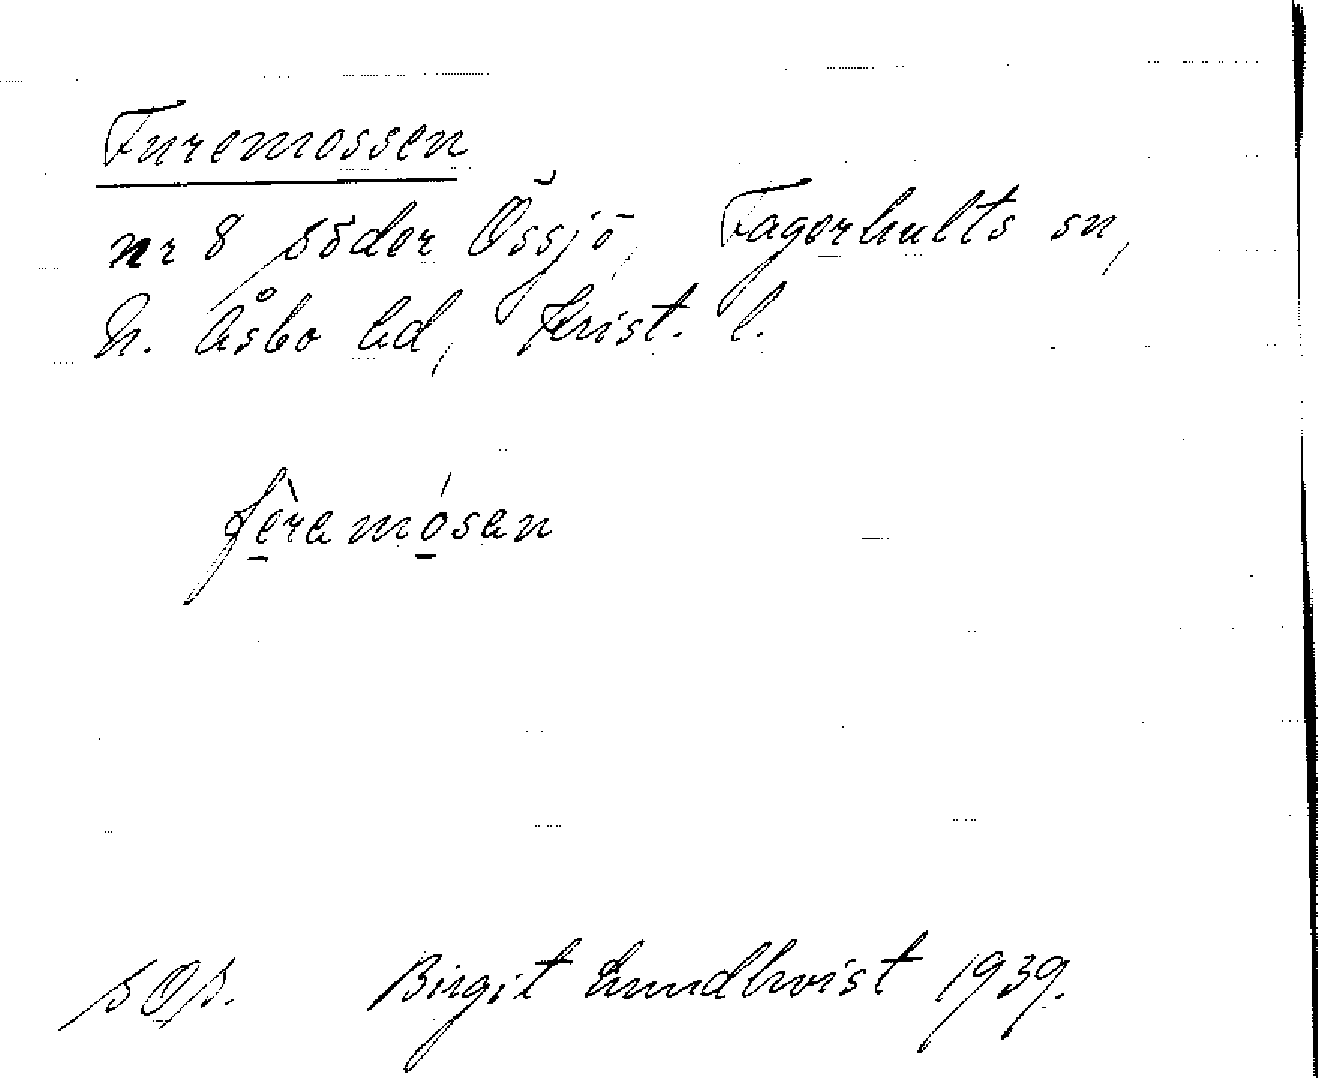 Furemossen
nr 8 söder Össjö, Fagerhults sn,
N. Åsbo hd, Krist. l.
fèramósan
Birgit Lundkvist 1939.